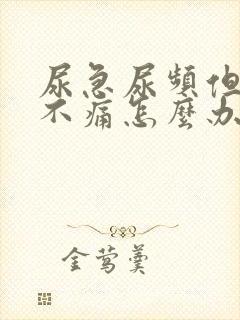 尿急尿頻但
不痛怎麼办
金莺羹